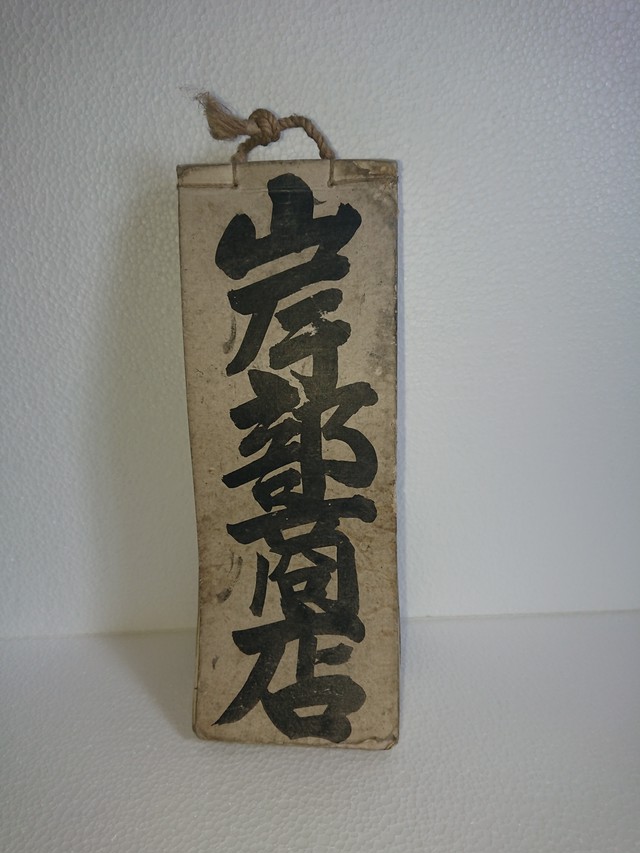 岸部商店